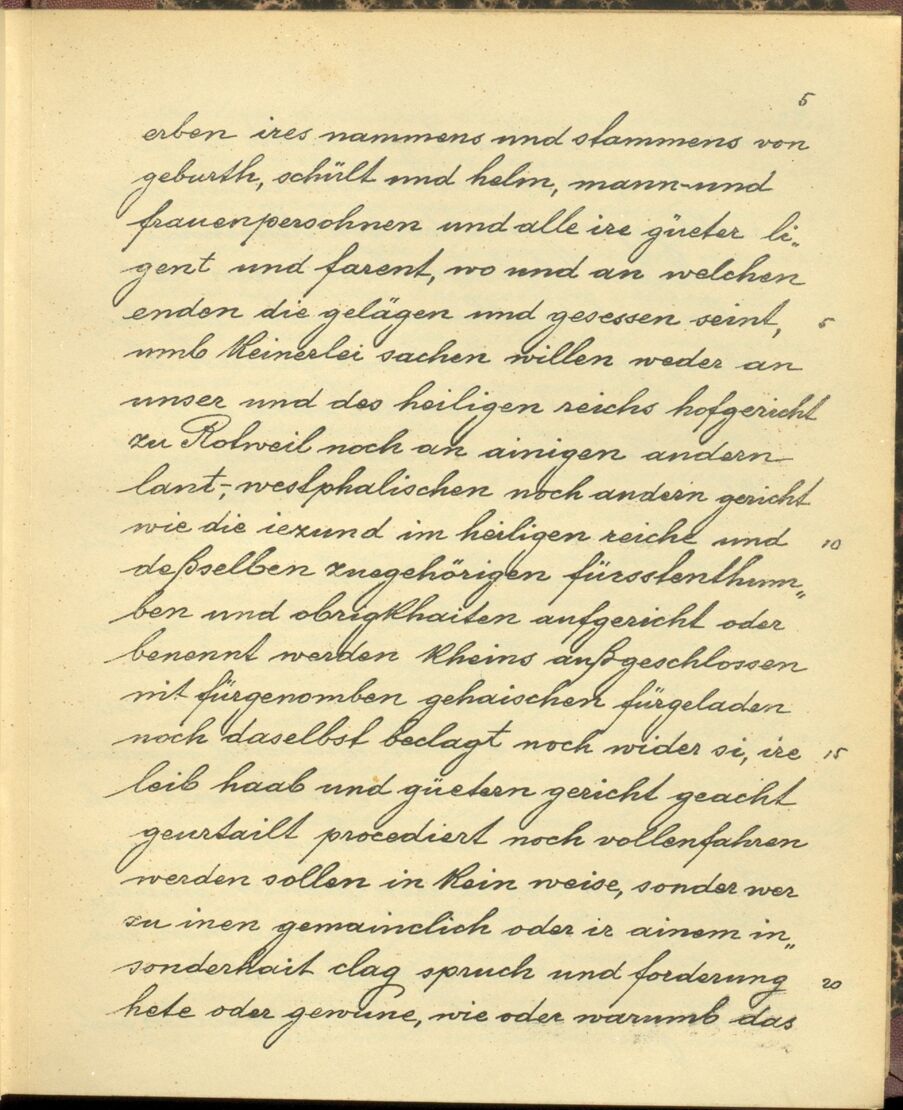 5
erben ires nammens und stammens von
geburth, schült und helm, mann-und
frauenpersohnen und alle ire güeter li„
gent und farent, wo und an welchen
enden die gelägen und gesessen seint, 5
umb keinerlei sachen willen weder an
unser und des heiligen reichs hofgericht
zu Rotweil noch an ainigen andern
lant-, westphalischen noch andern gericht
wie die iezund im heiligen reiche und 10
deßselben zuegehörigen fürsstenthum„
ben und obrigkhaiten aufgericht oder
benennt werden kheins außgeschlossen
nit fürgenomben gehaischen fürgeladen
noch daselbst beclagt noch wider si, ire 15
leib haab und güetern gericht geacht
geurtailt procediert noch vollenfahren
werden sollen in kein weise, sonder wer
zu inen gemainclich oder ir ainem in„
sonderhait clag spruch und forderung 20
hete oder gewüne, wie oder warumb das